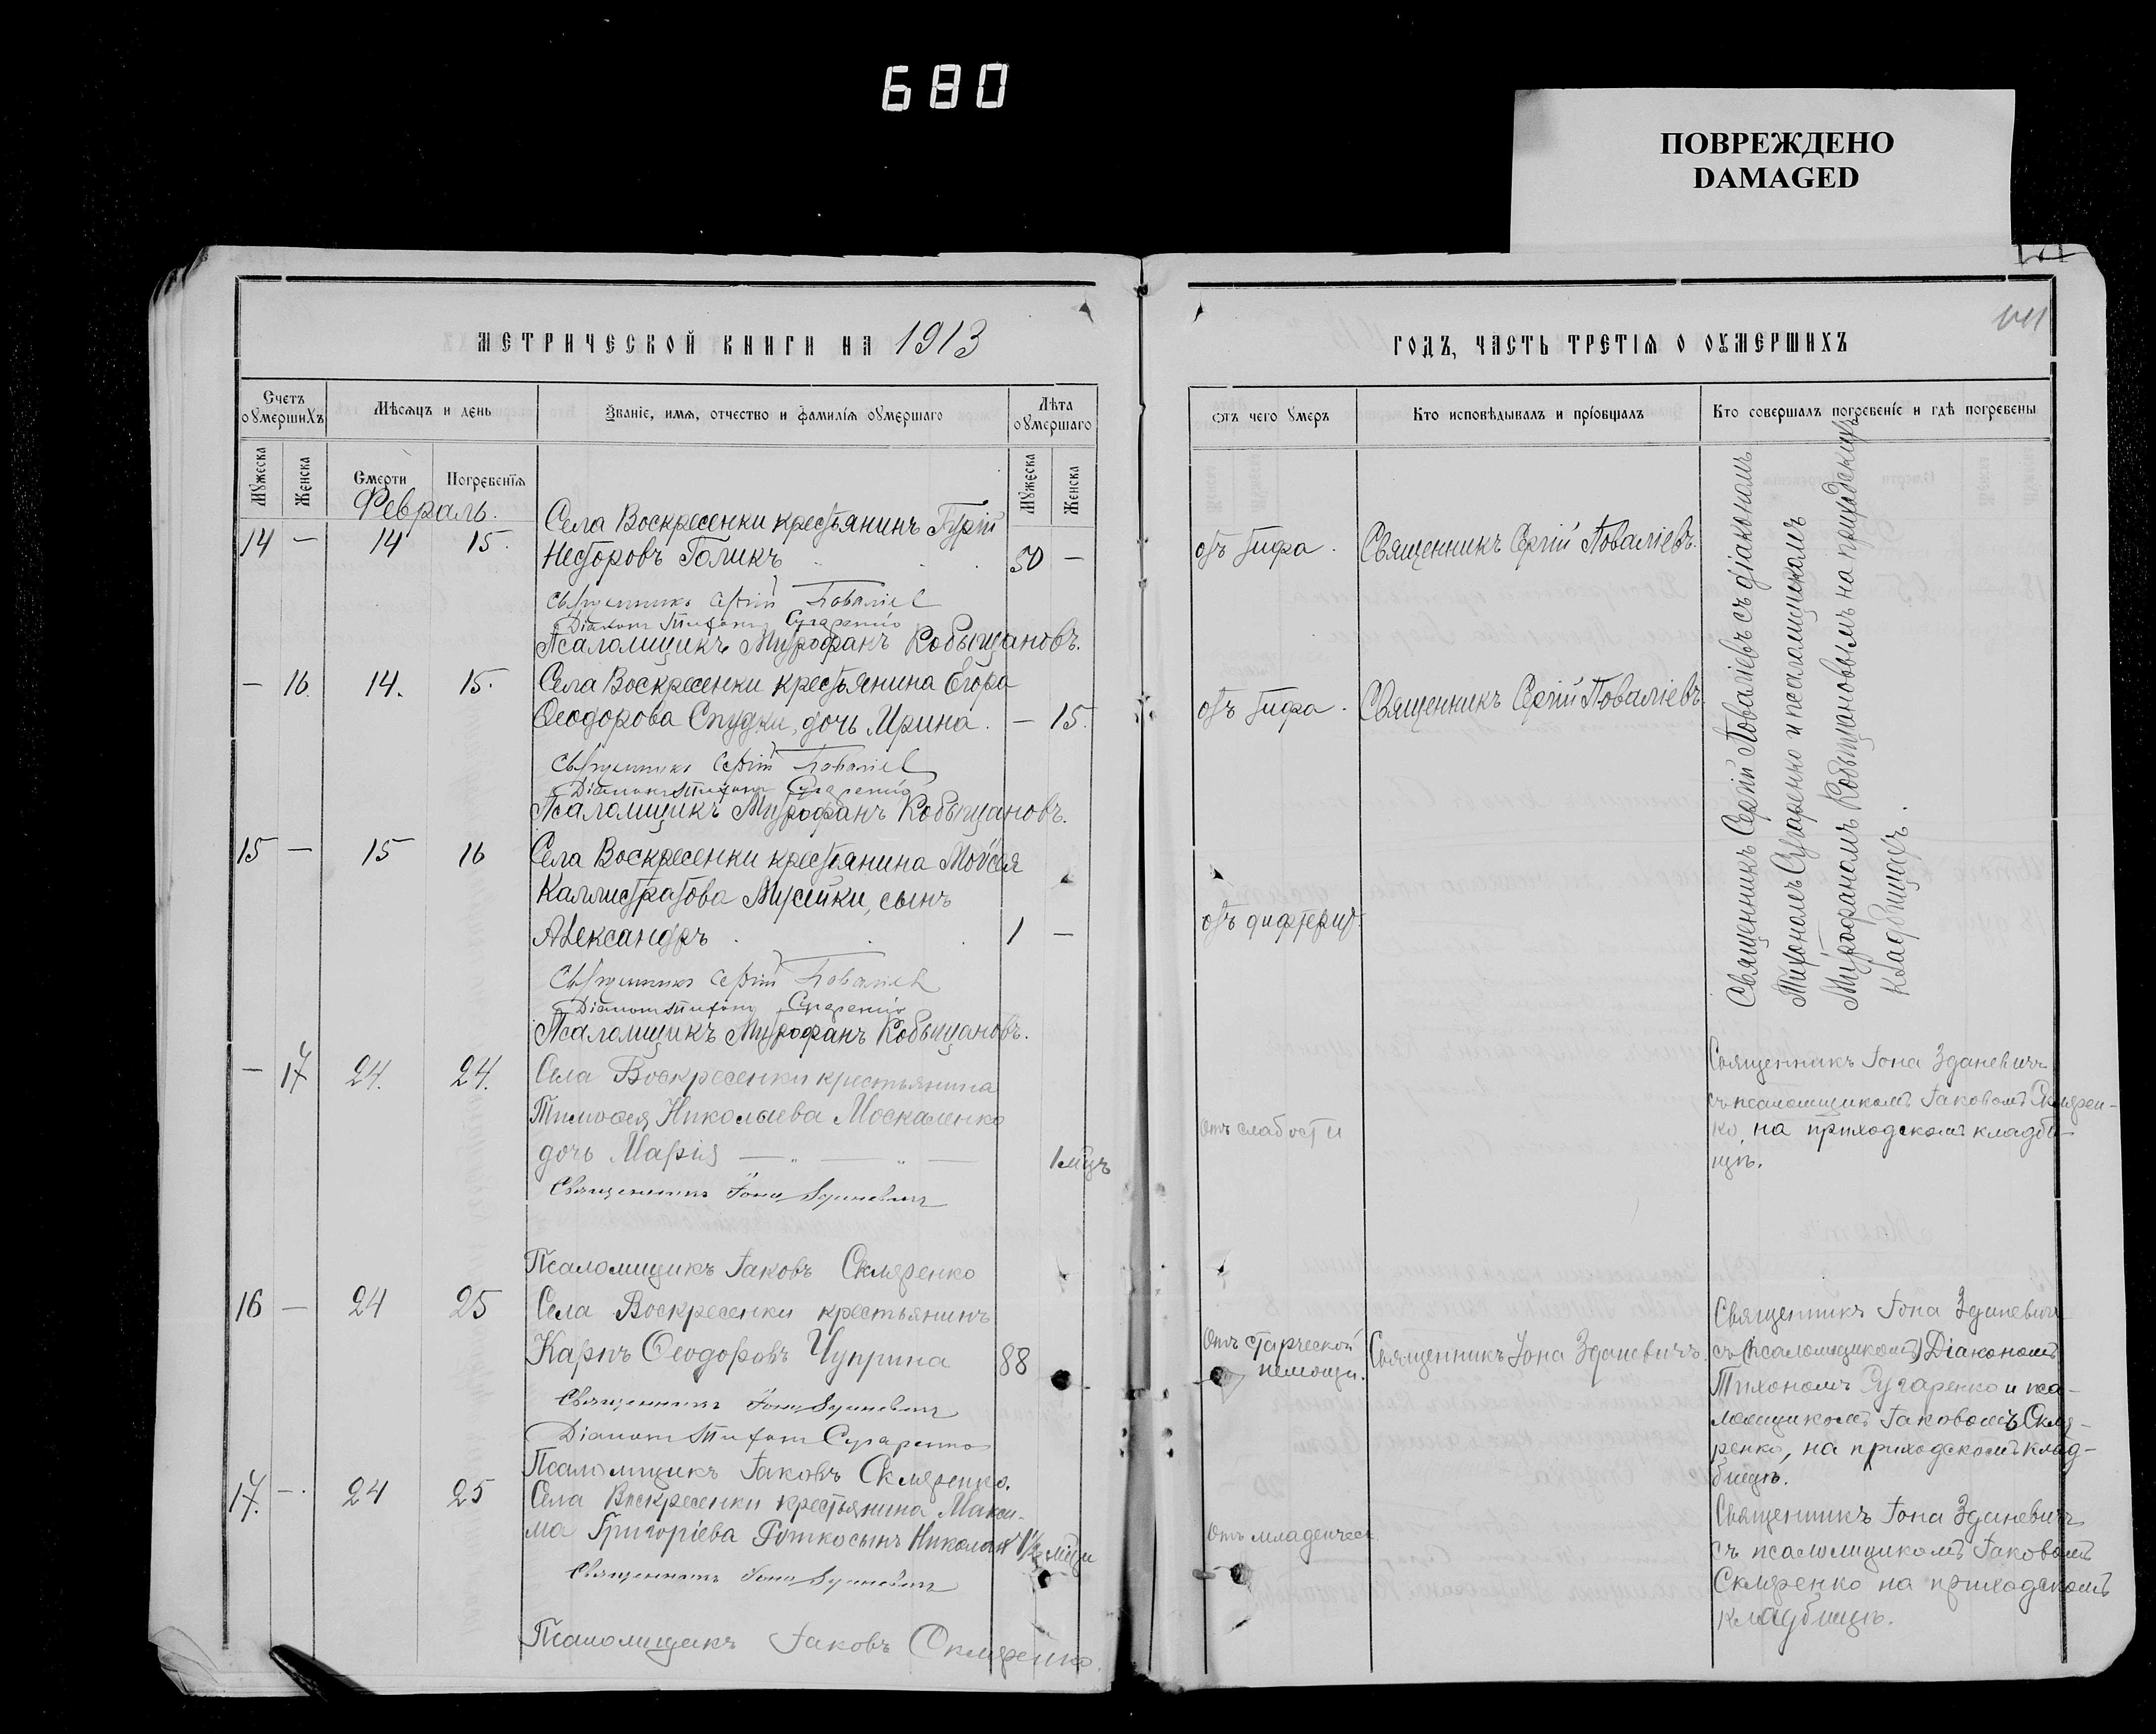 680
ПОВРЕЖДЕНО
DAMAGED
МЕТРИЧЕСКОЙ КНИГИ НА 1913
Счетъ оумершихъ
Мѣсяцъ и день
Званіе, имя, отчество и фамилія оумершаго
Лѣта оумершаго
Мужеска
Женска
Смерти
Погребенія
Мужеска
Женска
Февраль.
Села Воскресенки крестьянинъ Гурій
14 — 14 15.
Несторовъ Голикъ 50 —
Священникъ Сергій Поваліев
Діаконъ Тихонъ Сугаренко
Псаломщикъ Митрофанъ Кобыщановъ.
— 16. 14. 15. Села Воскресенки крестьянина Егора
Ѳеодорова Спудки, дочь Ирина. — 15.
Священникъ Сергій Поваліев
Діаконъ Тихонъ Сугаренко
Псаломщикъ Митрофанъ Кобыщановъ.
15 — 15 16 Села Воскресенки крестьянина Моѵсея
Каллистратова Мусійки, сынъ
Александръ 1 —
Священникъ Сергій Поваліев
Діаконъ Тихонъ Сугаренко
Псаломщикъ Митрофанъ Кобыщановъ.
— 17 24. 24. Села Воскресенки крестьянина
Тимоѳея Николаева Москаленко
дочь Марія 1 мѣцъ
Священникъ Іона Зданевичъ
Псаломщикъ Іаковъ Скляренко
16 — 24 25 Села Воскресенки крестьянинъ
Карпъ Ѳеодоровъ Чуприна 88
Священникъ Іона Зданевичъ
Діаконъ Тихонъ Сугаренко
Псаломщикъ Іаковъ Скляренко.
17. — 24 25 Села Воскресенки крестьянина Макси-
ма Григоріева Ротко сынъ Николай
Священникъ Іона Зданевичъ
Псаломщикъ Іаковъ Скляренко.
ГОДЪ, ЧАСТЬ ТРЕТІЯ О ОУМЕРШИХЪ
отъ чего умеръ
Кто исповѣдывалъ и пріобщалъ
Кто совершалъ погребеніе и гдѣ погребены
отъ тифа. Священникъ Сергій Поваліевъ.
отъ тифа. Священникъ Сергій Поваліевъ
отъ дифтерит.
Священникъ Сергій Поваліевъ съ діакономъ
Тихономъ Сугаренко и псаломщикомъ
Митрофаномъ Кобыщановымъ на приходскомъ
кладбищѣ.
Отъ слабости
Священникъ Іона Зданевичъ
съ псаломщикомъ Іаковомъ Склярен-
ко, на приходскомъ кладби-
щѣ.
Отъ старческой
немощи.
Священникъ Іона Зданевичъ.
Священникъ Іона Зданевичъ
съ (псаломщикомъ) Діакономъ
Тихономъ Сугаренко и пса-
ломщикомъ Іаковомъ Скля-
ренко, на приходскомъ клад-
бищѣ.
Отъ младенческ.
Священникъ Іона Зданевичъ
съ псаломщикомъ Іаковомъ
Скляренко на приходскомъ
кладбищѣ.